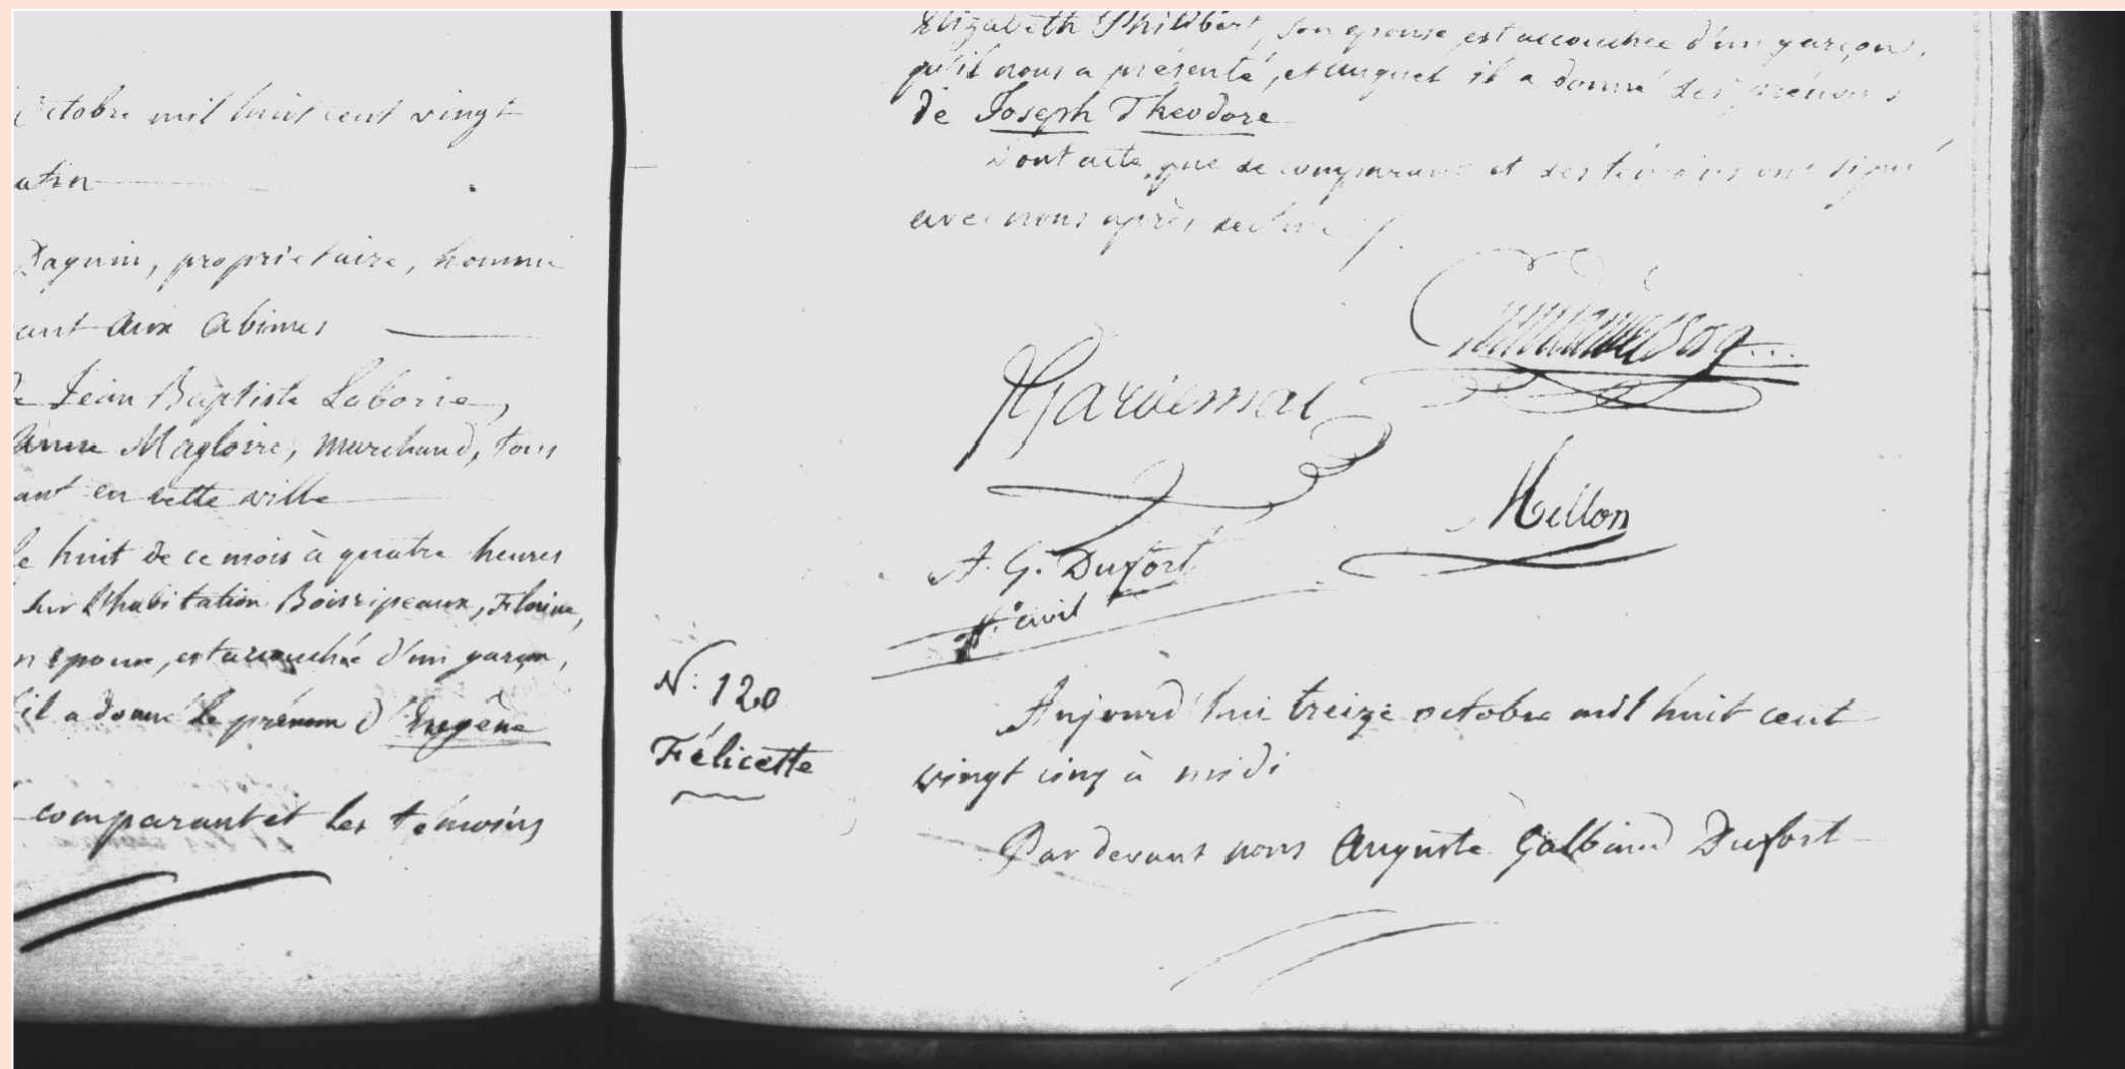 Octobre mil huit cent vingt
atin
Daguin, propriétaire, homme
ant aux abimes
Jean Baptiste Laborie,
Magloire, marchand, tous
ant en cette ville
le huit de ce mois à quatre heures
sur l'habitation Boisripeaux, Florine,
n épouse, est accouchée d'un garçon,
il a donné le prénom d'Eugène
comparant et les témoins
Elizabeth Philibert, son épouse est accouchée d'un garçon,
qu'il nous a présenté, et auquel il a donné les prénoms
de Joseph Theodore
Dont acte que le comparant et les témoins ont signé
avec nous après lecture ./.
Mellon
A. G. Dufort
civil
N: 120
Félicette
Aujourd'hui treize octobre mil huit cent
vingt cinq à midi
Par devant nous Auguste Galbaud Dufort